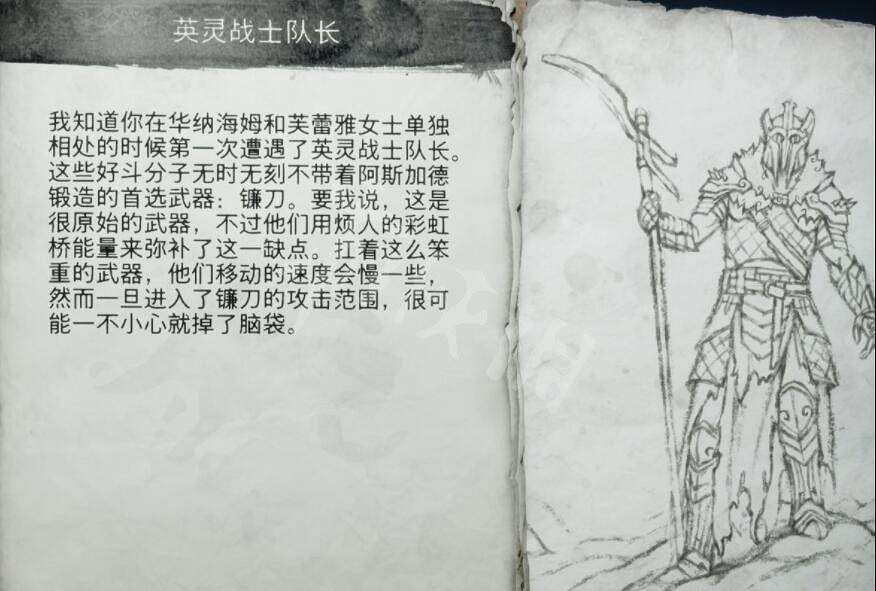 英灵战士队长
我知道你在华纳海姆和芙蕾雅女士单独
相处的时候第一次遭遇了英灵战士队长。
这些好斗分子无时无刻不带着阿斯加德
锻造的首选武器：镰刀。要我说，这是
很原始的武器，不过他们用烦人的彩虹
桥能量来弥补了这一缺点。扛着这么笨
重的武器，他们移动的速度会慢一些，
然而一旦进入了镰刀的攻击范围，很可
能一不小心就掉了脑袋。